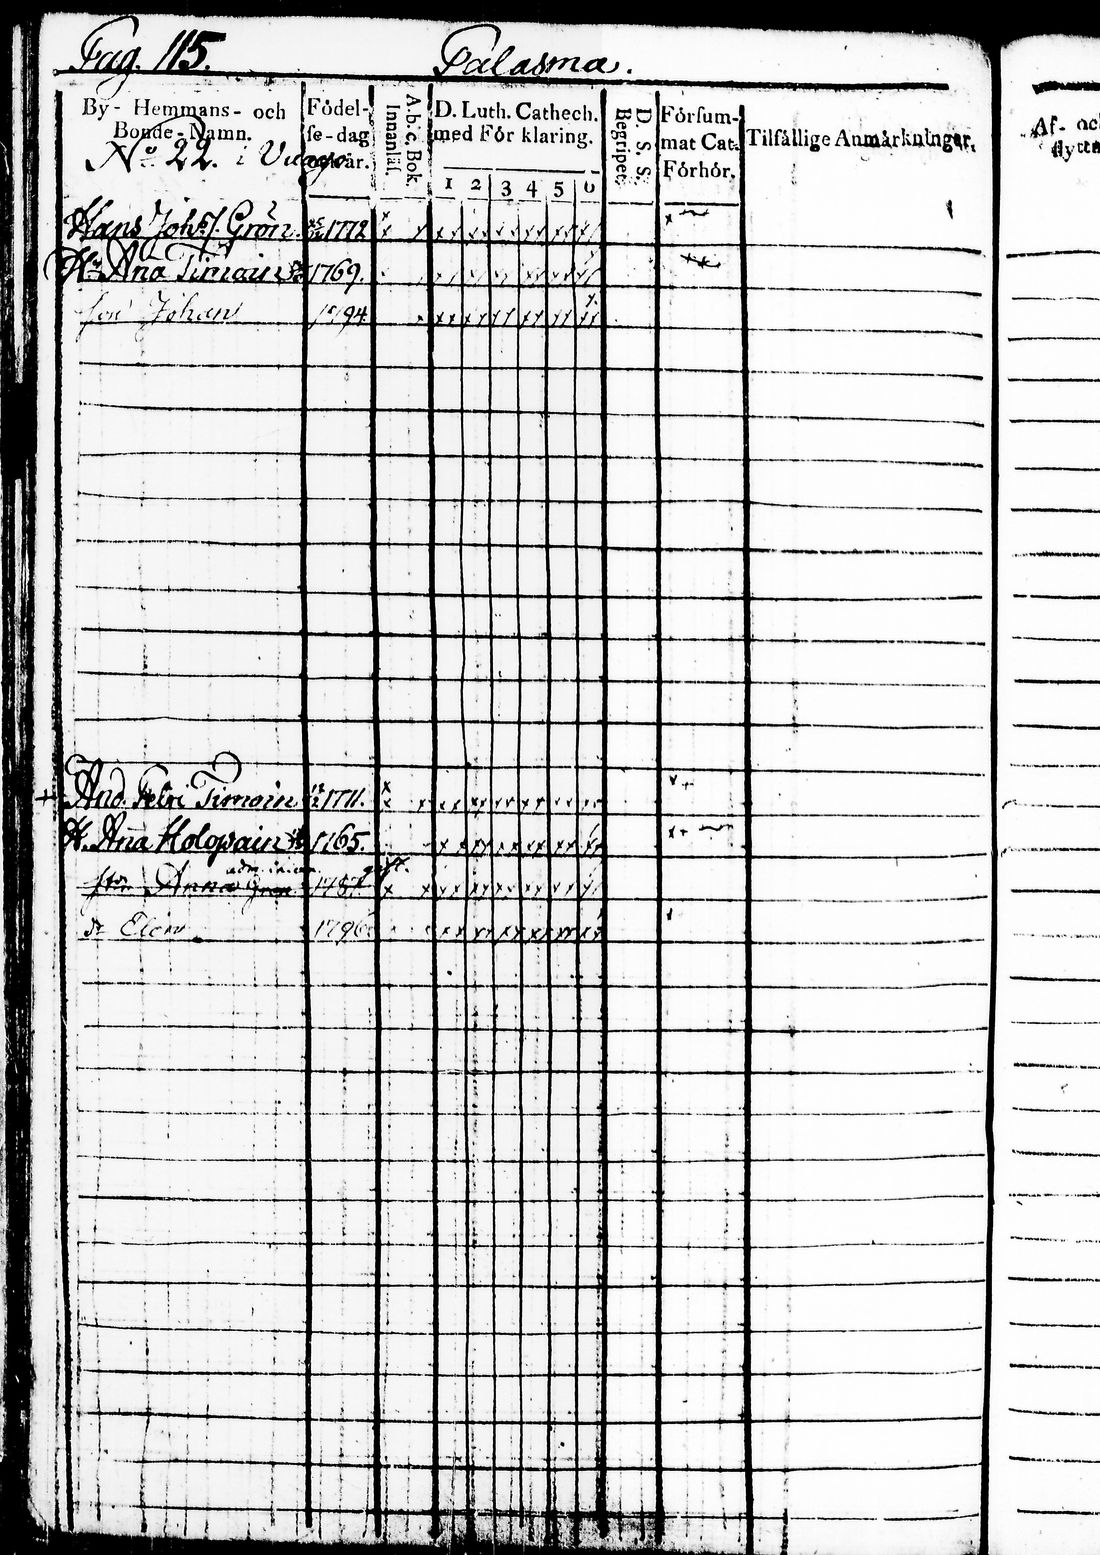 Pag. 115. Palasma.
By- Hemmans- och Bonde-Namn.
Födel-
se-dag
och år.
A.b.c. Bok.
Innanläs.
D. Luth. Cathech.
med För klaring.
1 2 3 4 5 6
D. S. S.
Begripet.
Försum-
mat Cat.
Förhör.
Tilfällige Anmärkningar.
Af- och
flytta
No 22. i
Hans Joh: f. Grön. 1772
H: Ana Timoin 1769.
son Johan 1794
And. Petri Timoin 1711.
H. Ana Holopain 1765.
adm. gift.
Anna Grön 1787
Elin 1796